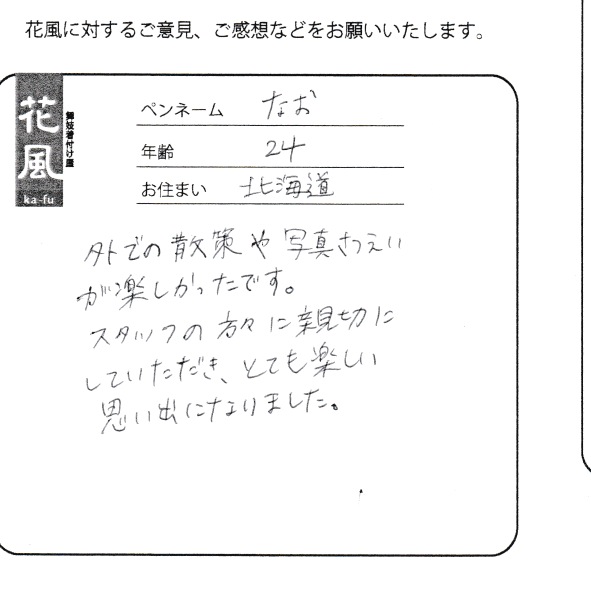 花風に対するご意見、ご感想などをお願いいたします。
花風
舞妓着付け屋
ka-fu
ペンネーム なお
年齢 24
お住まい 北海道
外での散策や写真さつえい
が楽しかったです。
スタッフの方々に親切に
していただき、とても楽しい
思い出になりました。